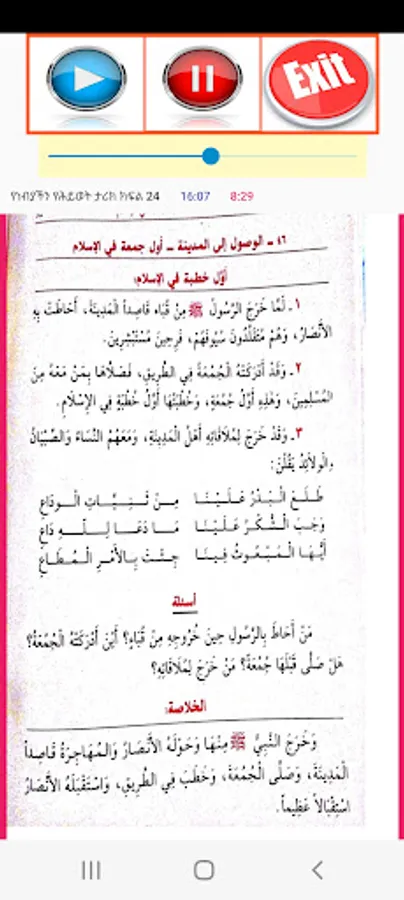 Exit
የነብያችን የሕይወት ታሪክ ክፍል 24 16:07 8:29
٤٦ - الوصول إلى المدينة - أول جمعة في الإسلام
أوّل خطبة في الإسلام:
١- لَمَّا خَرَجَ الرَّسُولُ ﷺ مِنْ قُبَاء قَاصِداً الْمَدِينَةَ، أَحَاطَتْ بِهِ
الأَنْصَارُ، وَهُمْ مُتَقَلِّدُونَ سُيُوفَهُمْ، فَرِحِينَ مُسْتَبْشِرِينَ.
٢- وَقَدْ أَدْرَكَتْهُ الْجُمُعَةُ فِي الطَّرِيقِ، فَصَلَّاهَا بِمَنْ مَعَهُ مِنَ
الْمُسْلِمِينَ، وَهَذِهِ أَوَّلُ جُمُعَةٍ، وَخُطْبَتُهَا أَوَّلُ خُطْبَةٍ فِي الإِسْلَامِ.
٣- وَقَدْ خَرَجَ لِمُلَاقَاتِهِ أَهْلُ الْمَدِينَةِ، وَمَعَهُمُ النِّسَاءُ وَالصِّبْيَانُ
وَالْوَلَائِدُ يَقُلْنَ:
طَلَعَ الْبَدْرُ عَلَيْنَا مِنْ ثَنِيَّاتِ الْوَدَاعِ
وَجَبَ الشُّكْرُ عَلَيْنَا مَا دَعَا لِلَّهِ دَاعِ
أَيُّهَا الْمَبْعُوثُ فِينَا جِئْتَ بِالأَمْرِ الْمُطَاعِ
أسئلة
مَنْ أَحَاطَ بِالرَّسُولِ حِينَ خُرُوجِهِ مِنْ قُبَاءٍ؟ أَيْنَ أَدْرَكَتْهُ الْجُمُعَةُ؟
هَلْ صَلَّى قَبْلَهَا جُمُعَةً؟ مَنْ خَرَجَ لِمُلَاقَاتِهِ؟
الخلاصة:
وَخَرَجَ النَّبِيُّ ﷺ مِنْهَا وَحَوْلَهُ الأَنْصَارُ وَالْمُهَاجِرَةُ قَاصِداً
الْمَدِينَةَ، وَصَلَّى الْجُمُعَةَ، وَخَطَبَ فِي الطَّرِيقِ، وَاسْتَقْبَلَهُ الأَنْصَارُ
اسْتِقْبَالاً عَظِيماً.